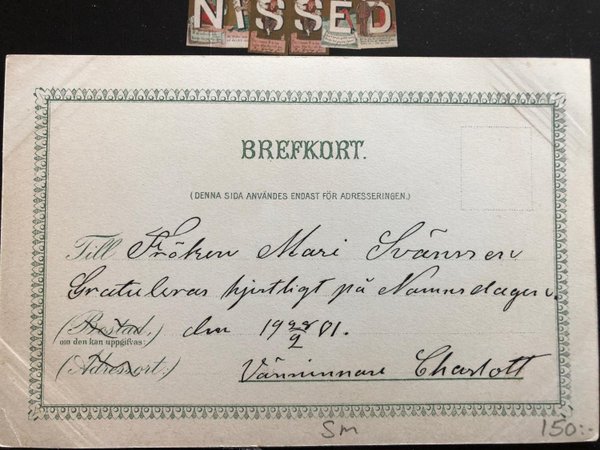 NISSED
BREFKORT.
(DENNA SIDA ANVÄNDES ENDAST FÖR ADRESSERINGEN.)
Till Fröken Mari Svänssen
Gratuleras hjertligt på Namnsdagen.
(Bostad.) den 19 28/2 01.
om den kan uppgifvas:
(Adressort.) Vänninnare Charlott
Sm 150:-